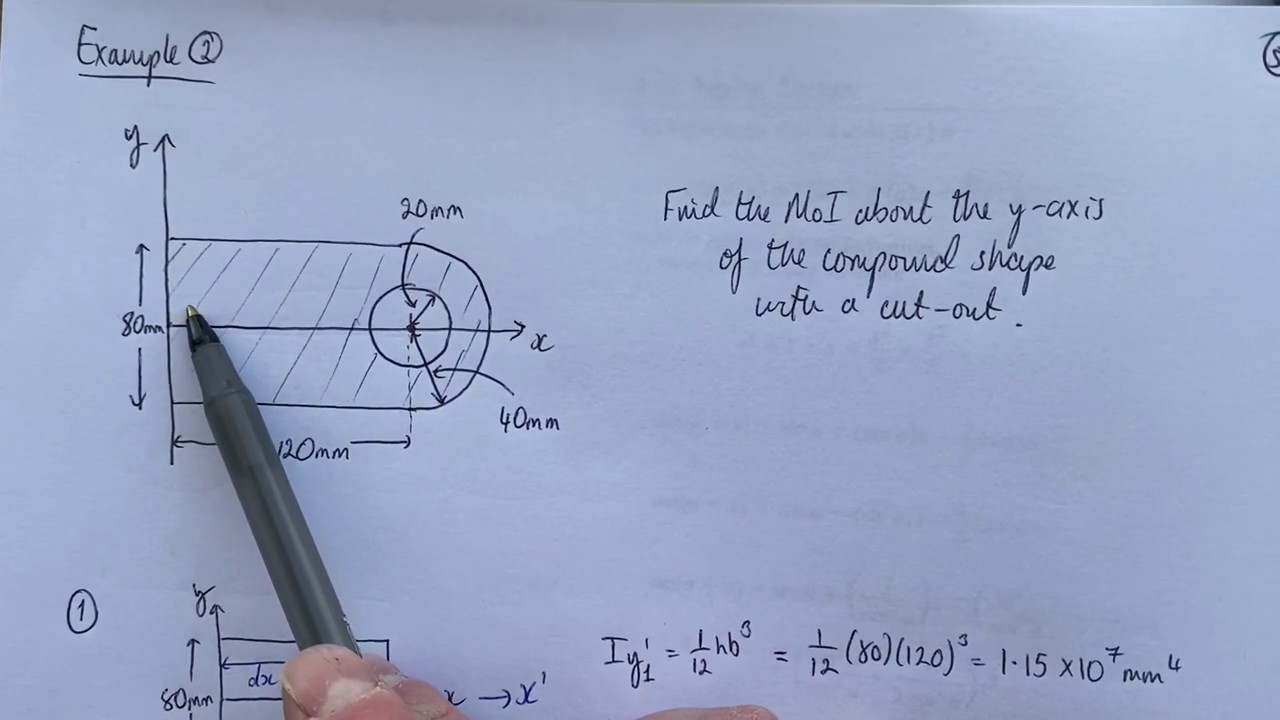 Example ②
y
20mm
80mm
x
40mm
120mm
Find the MoI about the y-axis
of the compound shape
with a cut-out.
①
y
dx
80mm
x → x'
Iy₁' = 1/12 hb³ = 1/12 (80)(120)³ = 1.15 × 10⁷ mm⁴